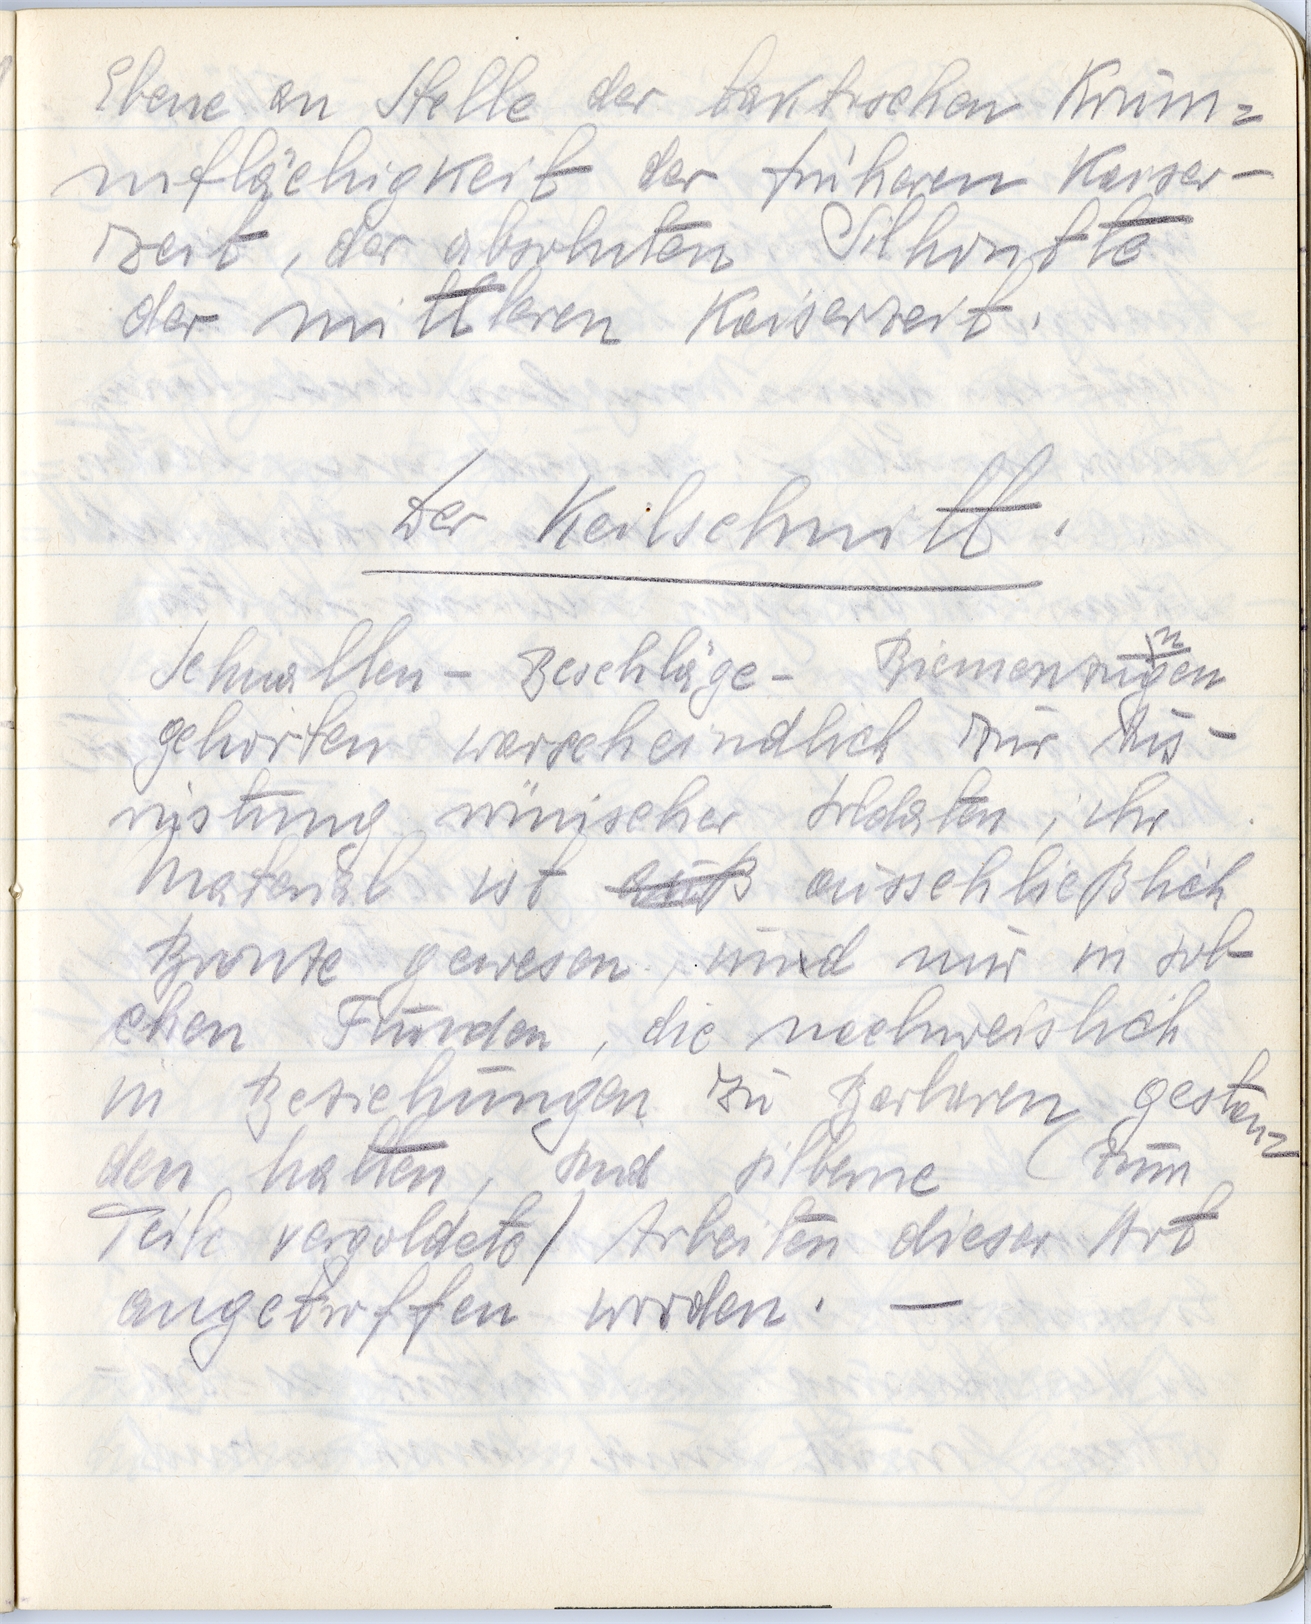 Ebene an Stelle der taktischen Krüm=
mflächigkeit der früheren Kaiser-
zeit, der absoluten Silhoutte
der mittleren Kaiserzeit.
Der Keilschnitt.
Schnallen- Beschläge- Riemenzungen
gehörten warscheindlich zur Aus-
rüstung römischer Soldaten, ihr
Material ist auß ausschließlich
Bronze gewesen, und nur in sol-
chen Funden, die nachweislich
in Beziehungen zu Barbaren gestan=
den hatten, sind silberne (zum
Teile vergoldete) Arbeiten dieser Art
angetroffen worden. —